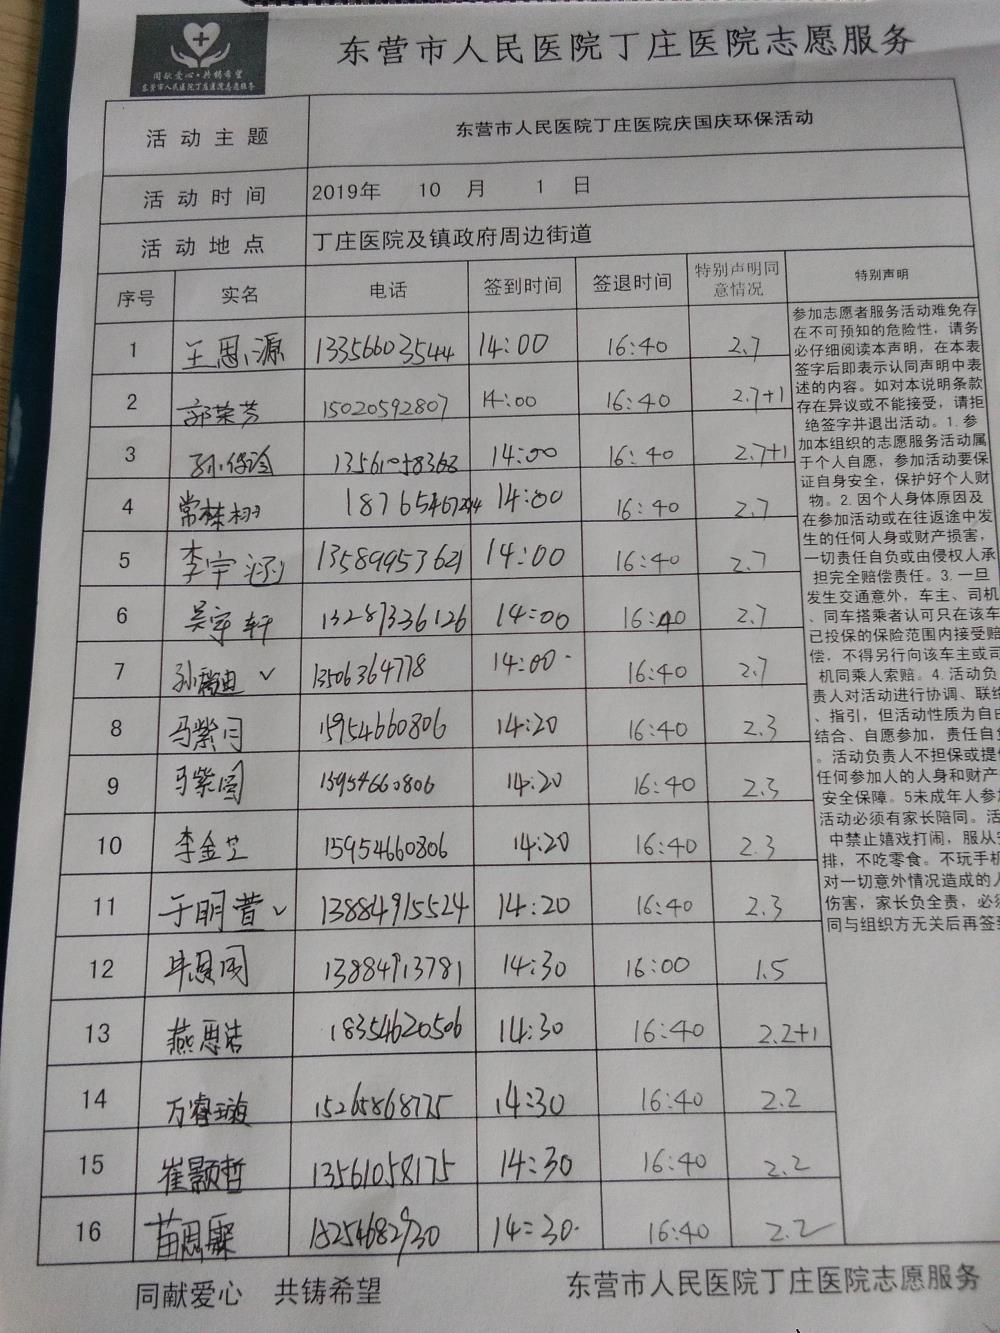 同献爱心·共铸希望
东营市人民医院丁庄医院志愿服务
东营市人民医院丁庄医院志愿服务
活动主题 东营市人民医院丁庄医院庆国庆环保活动
活动时间 2019年 10 月 1 日
活动地点 丁庄医院及镇政府周边街道
序号 实名 电话 签到时间 签退时间 特别声明同意情况 特别声明
1 王思源 13356603544 14:00 16:40 2.7
2 郭荣芳 15020592807 14:00 16:40 2.7+1
3 13561058368 14:00 16:40 2.7+1
4 常梓栩 14:00 16:40 2.7
5 李宇涵 13589953621 14:00 16:40 2.7
6 吴宇轩 13287336126 14:00 16:40 2.7
7 孙瑞迪 ✓ 13506364778 14:00 16:40 2.7
8 马紫闫 15954660806 14:20 16:40 2.3
9 马紫圆 15954660806 14:20 16:40 2.3
10 李金芝 15954660806 14:20 16:40 2.3
11 于明萱 ✓ 13884915524 14:20 16:40 2.3
12 13884913781 14:30 16:00 1.5
13 燕思洁 18354620506 14:30 16:40 2.2+1
14 万睿璇 15265868775 14:30 16:40 2.2
15 崔颢哲 13561058175 14:30 16:40 2.2
16 苗思霖 18254682930 14:30 16:40 2.2
参加志愿者服务活动难免存
在不可预知的危险性，请务
必仔细阅读本声明，在本表
签字后即表示认同声明中表
述的内容。如对本说明条款
存在异议或不能接受，请拒
绝签字并退出活动。1.参
加本组织的志愿服务活动属
于个人自愿，参加活动要保
证自身安全，保护好个人财
物。2.因个人身体原因及
在参加活动或在往返途中发
生的任何人身或财产损害，
一切责任自负或由侵权人承
担完全赔偿责任。3.一旦
发生交通意外，车主、司机
、同车搭乘者认可只在该车
已投保的保险范围内接受赔
偿，不得另行向该车主或司
机同乘人索赔。4.活动负
责人对活动进行协调、联络
、指引，但活动性质为自由
结合、自愿参加，责任自负
。活动负责人不担保或提供
任何参加人的人身和财产
安全保障。5未成年人参加
活动必须有家长陪同。活
中禁止嬉戏打闹，服从安
排，不吃零食。不玩手机
对一切意外情况造成的人
伤害，家长负全责，必须
同与组织方无关后再签到
同献爱心 共铸希望 东营市人民医院丁庄医院志愿服务